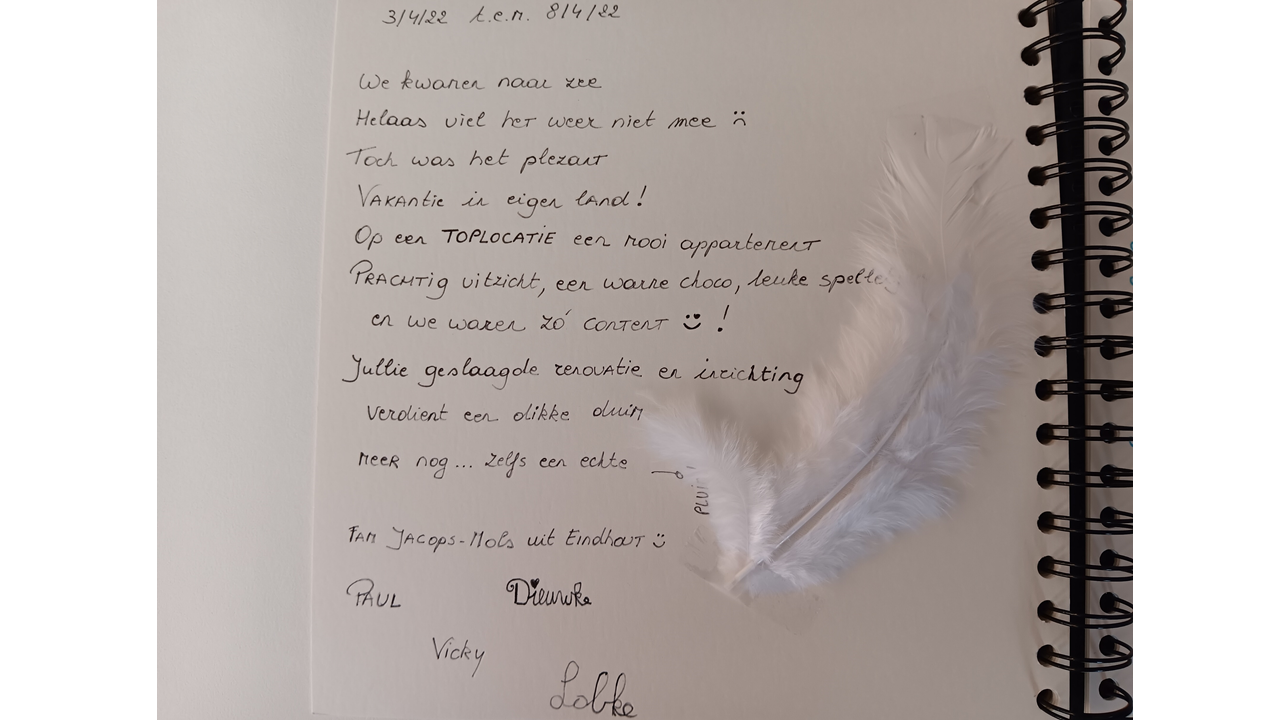 3/4/22 t.e.m. 8/4/22
We kwamen naar zee
Helaas viel het weer niet mee ☹
Toch was het plezant
Vakantie in eigen land!
Op een TOPLOCATIE een mooi appartement
Prachtig uitzicht, een warme choco, leuke spelle
en we waren zó content ☺ !
Jullie geslaagde renovatie en inrichting
verdient een dikke duim
meer nog... zelfs een echte
Fam Jacops-Mols uit Eindhout ☺
Paul Dieuwke
Vicky
Lobke